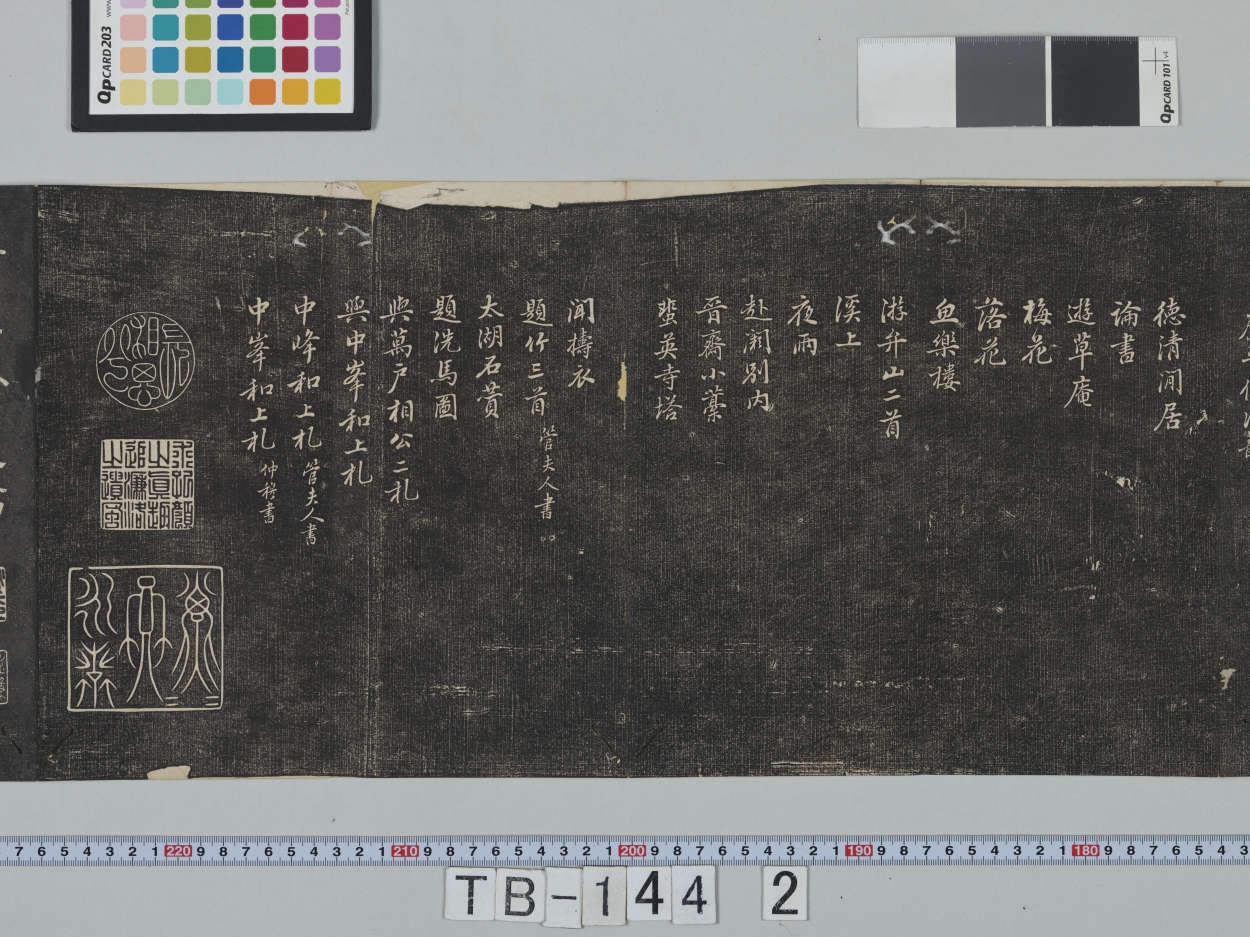 德清閒居
論書
遊草庵
梅花
落花
魚樂樓
游弁山二首
溪上
夜雨
赴闕別內
晉齋小藁
蜚英寺塔
聞擣衣
題竹三首 管夫人書
太湖石贊
題洗馬圖
與萬戶相公二札
與中峯和上札
中峰和上札 管夫人書
中峯和上札 仲穆書
QPCARD 203
QPCARD 101 v4
7 6 5 4 3 2 1 220 9 8 7 6 5 4 3 2 1 210 9 8 7 6 5 4 3 2 1 200 9 8 7 6 5 4 3 2 1 190 9 8 7 6 5 4 3 2 1 180 9 8 7 6 5 4 3
TB-144 2